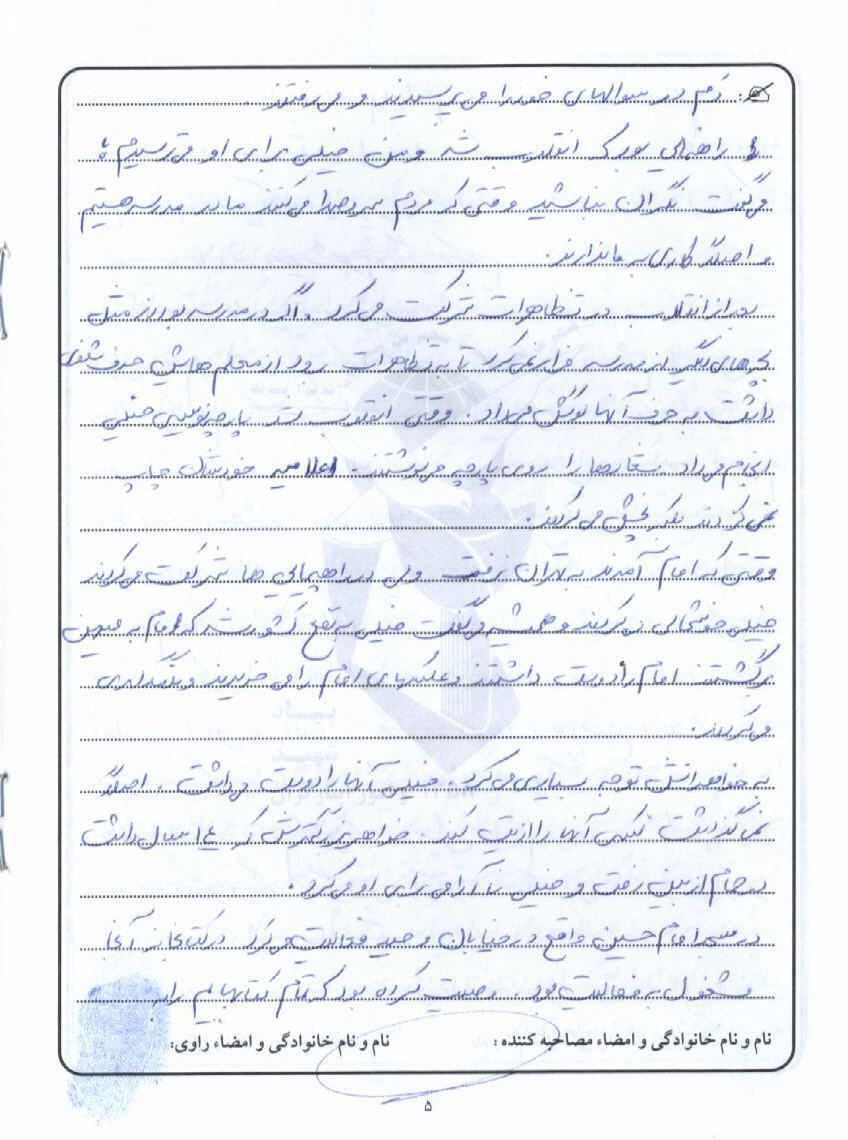 مردم در سوالهای خود را می پرسیدند و می رفتند.
راهنمائی بود که انقلاب شد و من خیلی برای او می ترسیدم
می گفت نگران نباشید وقتی که مردم سروصدا می کنند ما در مدرسه هستیم
و اصلاً کاری به ما ندارند.
بعد از انقلاب در تظاهرات شرکت می کرد. اگر در مدرسه بودند مثل
بچه های دیگر از مدرسه فرار نمی کرد تا به تظاهرات رود از معلم هایش حرف شنوی
داشت به حرف آنها گوش می داد. وقتی انقلاب شد پارچه نویسی خیلی
انجام می داد شعارها را روی پارچه می نوشتند. اعلامیه خودشان چاپ
نمی کردند بلکه پخش می کردند.
وقتی که امام آمدند به تهران نرفت ولی در راهپیمایی ها شرکت می کردند
خیلی خوشحالی می کردند و همیشه می گفت خیلی به نفع کشور شد که امام به میهن
برگشتند امام را دوست داشتند و عکسهای امام را می خریدند و نگهداری
می کردند.
به خواهرانش توجه بسیاری می کرد. خیلی آنها را دوست می داشت. اصلاً
نمی گذاشت کسی آنها را اذیت کند. خواهر بزرگترش که ۱۴ سال داشت
در حمام از بین رفت و خیلی ناآرامی برای او می کرد.
در مسجد امام حسین واقع در خیابان وحید فعالیت می کرد در کتابخانه آنجا
مشغول به فعالیت بود. وصیت کرده بود که تمام کتابهایم را به
نام و نام خانوادگی و امضاء مصاحبه کننده: نام و نام خانوادگی و امضاء راوی:
۵